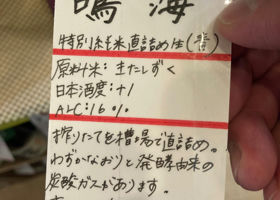 鳴海
特別純米直詰め生(青)
原料米:主たしずく
日本酒度:+1
ALC:16%
搾りたてを槽場で直詰め。
わずかなおりと発酵由来の
炭酸ガスがあります。